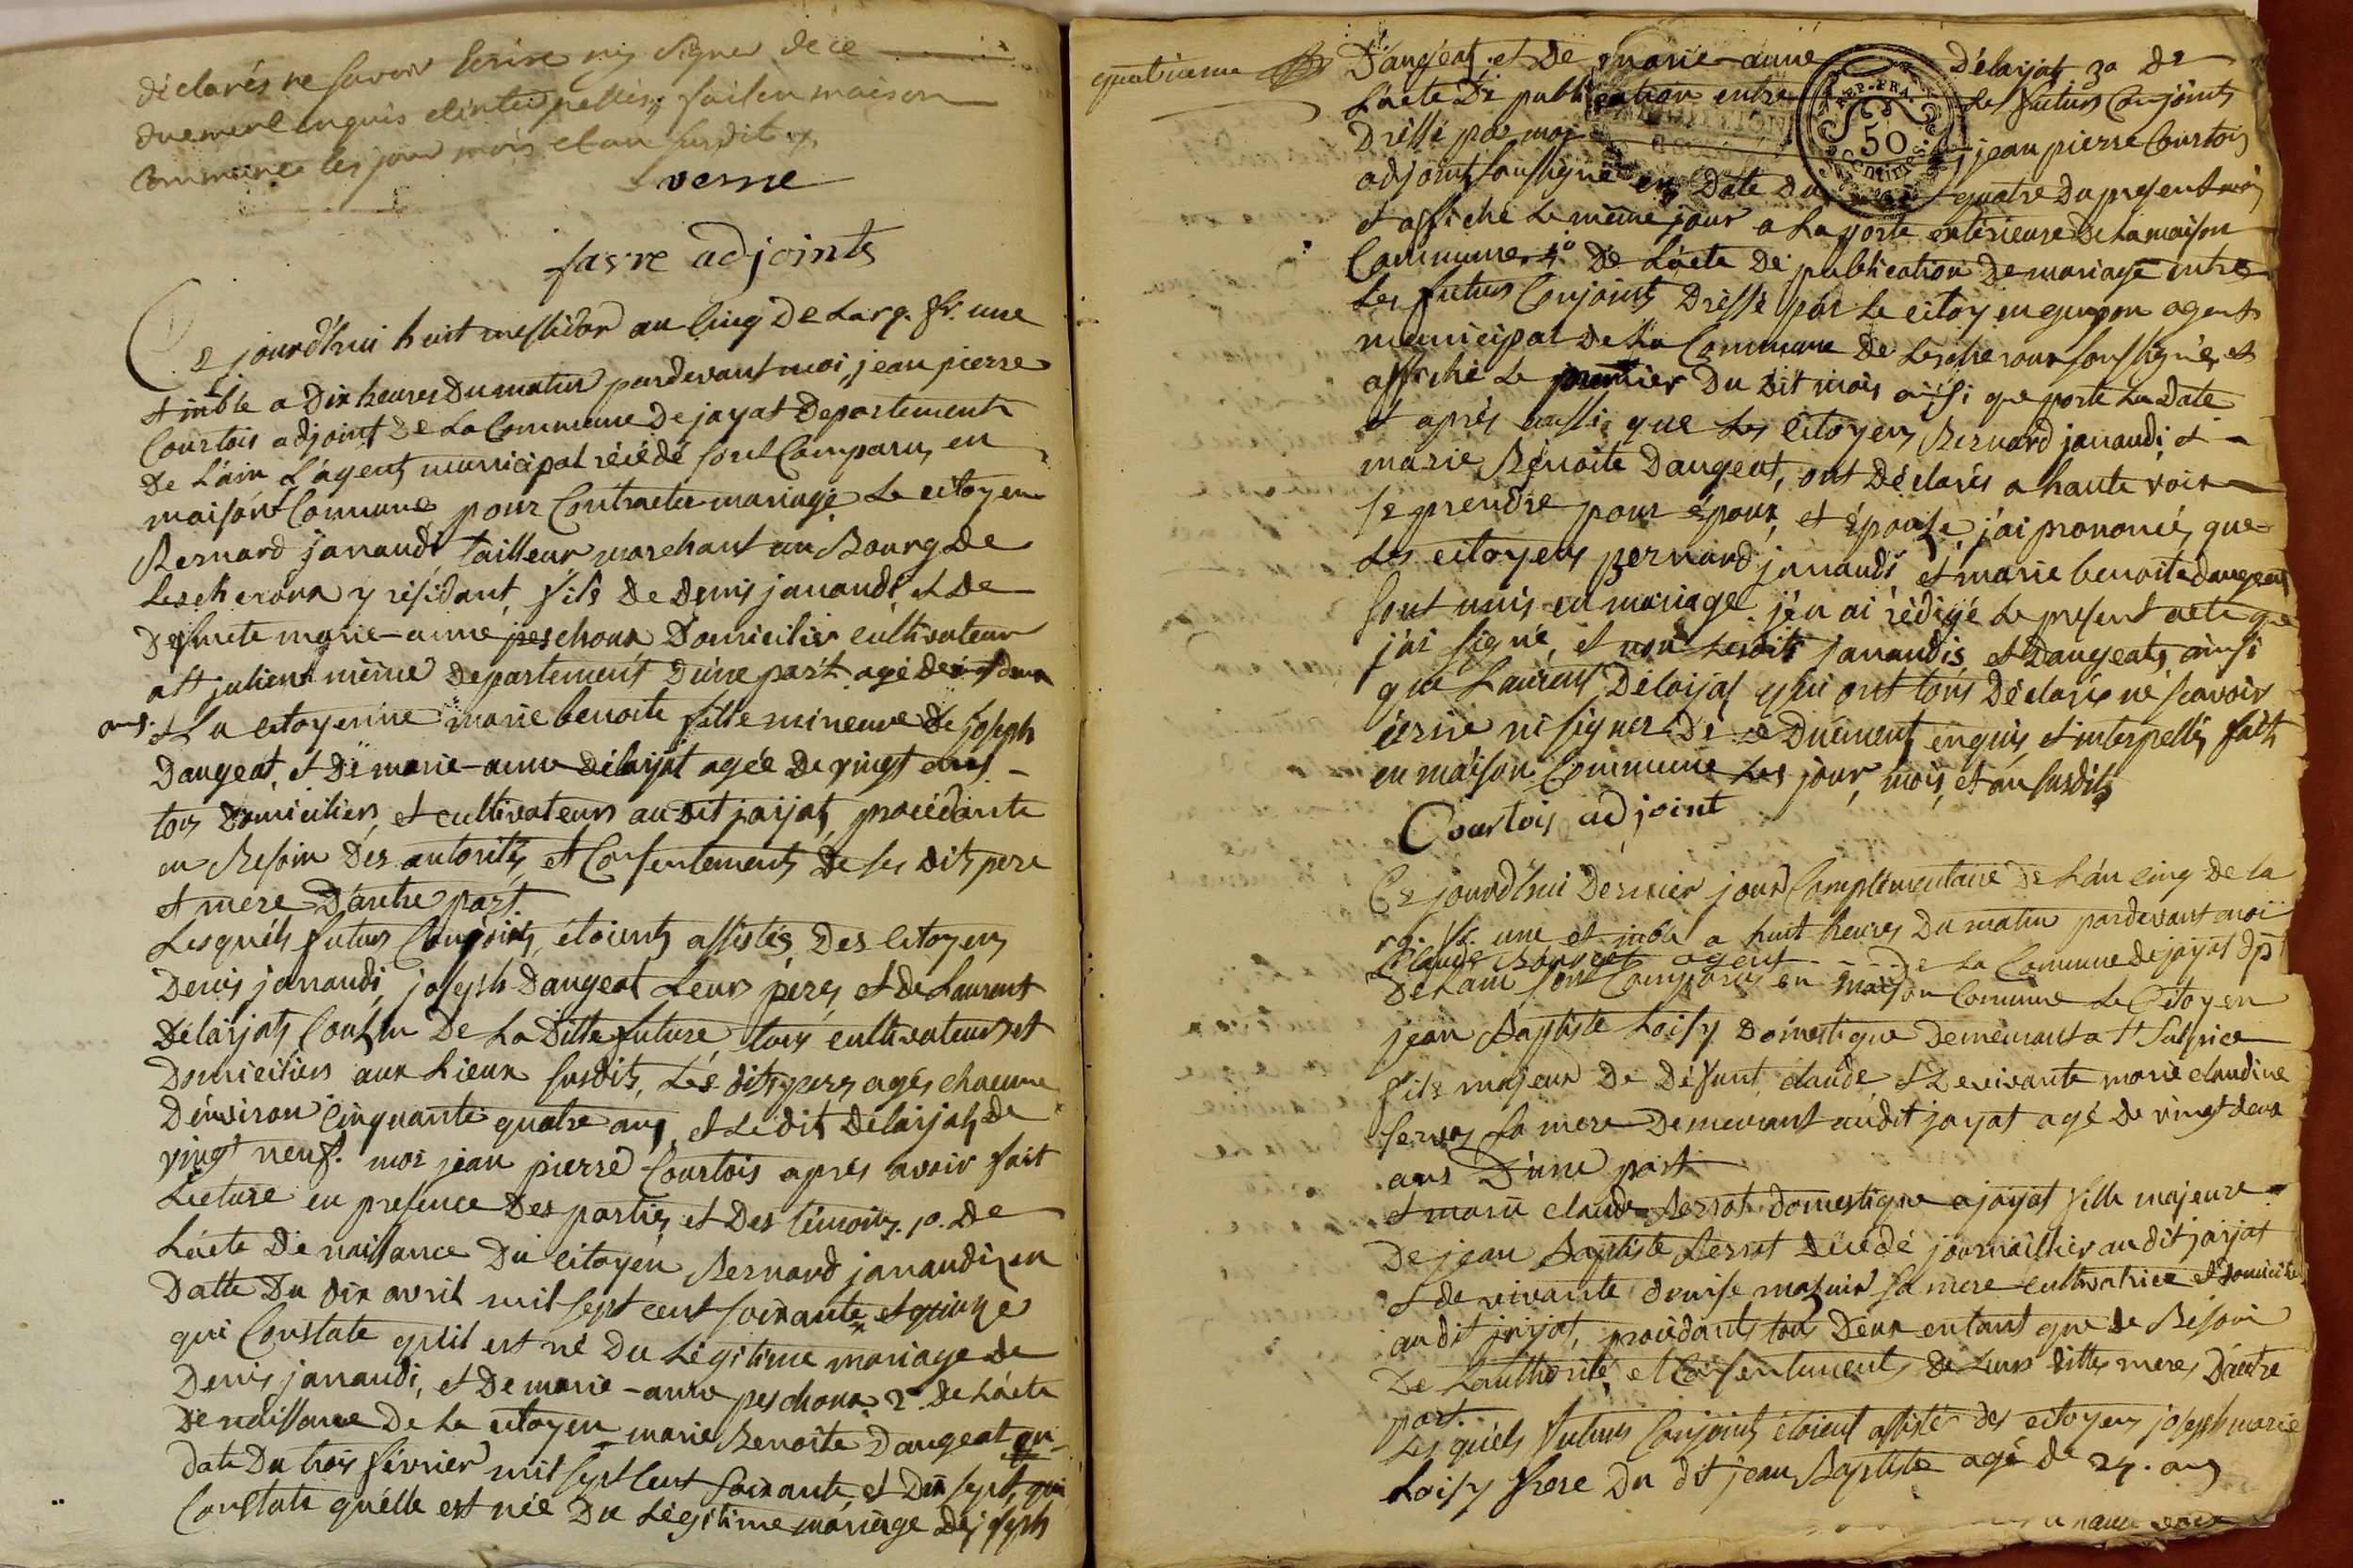 déclarés ne savoir écrire ny signer de ce
duement enquis et interpellés, fait en maison
commune les jour mois et an susdit
verne
favre adjoints
Ce jourd'hui huit messidor an cinq de la rep. fr. une
et inble a dix heures du matin pardevant moi, jean pierre
Courtois adjoint de la Commune de jayat departement
de L'ain L'agent municipal décédé sont Comparu, en
maison Commune pour Contracter mariage Le citoyen
Bernard janaudi, tailleur, marchant au Bourg de
Lescheroux y résidant, fils de Denis janaudi et de
deffuncte marie-anne peschoux Domicilier cultivateur
a st julien même departement d'une part agé de
ans.
et La citoyenne marie benoite fille mineure de joseph
Dangeat, et de marie-anne délaijat agée de vingt ans
tous domiciliers, et cultivateurs au dit jaijat, procédante
en Besoin des autorités, et Consentements de ses dits pere
et mere D'autre part.
Lesquéls futurs Conjoints, étoients assistés, Des Citoyens
Denis janaudi, joseph Dangeat Leurs péres, et de Laurent
délaijat, Cousin De La ditte future, tous cultivateurs et
Domiciliers aux Lieux susdits, Les dits peres agés chacune
D'environ Cinquante quatre ans, et Le dit Délaijat, de
vingt neuf. moi jean pierre Courtois aprés avoir fait
Lecture en presence des parties, et Des témoins. 1o. de
L'acte De naissance Du citoyen Bernard janaudi, en
Datte Du dix avril mil sept cent soixante et quinze
qui Constate qu'il est né Du Légitime mariage de
Denis janaudi, et De marie-anne peschoux. 2o. de L'acte
De naissance De La citoyen marie Benoite Dangeat en
date Du trois février mil sept Cent soixante et Dix sept, qui
Constate qu'elle est née Du Légitime mariage de joseph
quatrieme
D'angeat, et De marie-anne Délaijat, 3o De
L'acte De publication entre Les futurs Conjoints
Dréssé par moi jean pierre Courtois
adjoint, soussigné en Date Du quatre Du present mois
REP. FRA.
50
Centimes
et affiché Le même jour a La porte extérieure De La maison
Commune, 4o De L'acte De publication De mariage entre
Les futurs Conjoints Dréssé par Le citoyen agent
municipal De La Commune De Lescheroux soussigné, et
affiché Le premier Du dit mois ainsi que porte La Date
et aprés aussi, que Les citoyens, Bernard janaudi, et
marie Benoite Dangeat, ont Déclarés a haute voix
se prendre pour époux, et épouse, j'ai prononcé, que
Les citoyens, Bernard janaudi et marie benoite dangeat
sont unis en mariage. j'en ai rédigé Le present acte que
j'ai signé, et non Lesdits janaudis et Dangeats, ainsi
que Laurent Délaijat, qui ont tous Déclarés ne scavoir
écrire ni signer De ce Duement, enquis, et interpellés, fait
en maison Commune Les jour, mois, et an susdits
Courtois, adjoint
Ce jourd'hui Dernier jour Complémentaire De L'an cinq De La
rp. fr. une et inble a huit heures Du matin pardevant moi
Claude agent De La Commune de jayat dpt
De L'ain sont Comparus en maison Commune Le Citoyen
jean Baptiste Loisy Doméstique Demeurant a St Sulpice
fils majeur De Défunt claude, et De vivante marie claudine
servas sa mere Demeurant audit jayat agé De vingt deux
ans D'une part.
et marie claude domestique a jayat fille majeure
De jean Baptiste décédé journaillier au dit jaijat
et de vivante sa mere cultivatrice et domicilié
au dit jaijat, procédants tous Deux entant que De Besoin
De L'authorité, et Consentements De Leurs dittes meres D'autre
part.
Lesquéls futurs Conjoints étoient assisté des citoyens joseph marie
Loisy frere Du dit jean Baptiste agé de 24. ans